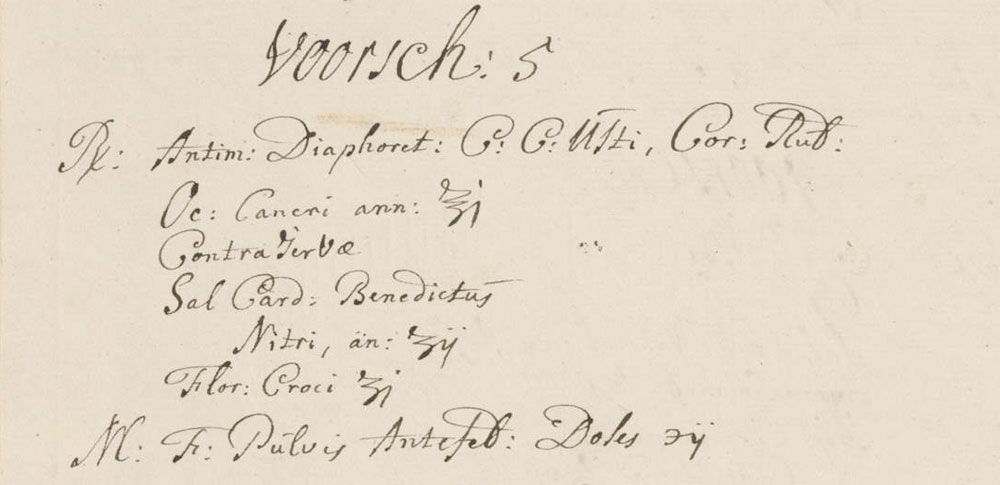 Voorsch: 5
℞: Antim: Diaphoret: C: C: Usti, Cor: Rub:
Oc: Cancri ann: ℥j
Contrajervæ
Sal Card: Benedictus
Nitri, än: ʒij
Flor: Croci ʒj
M: F: Pulvis Antefeb: Doses ℈ij